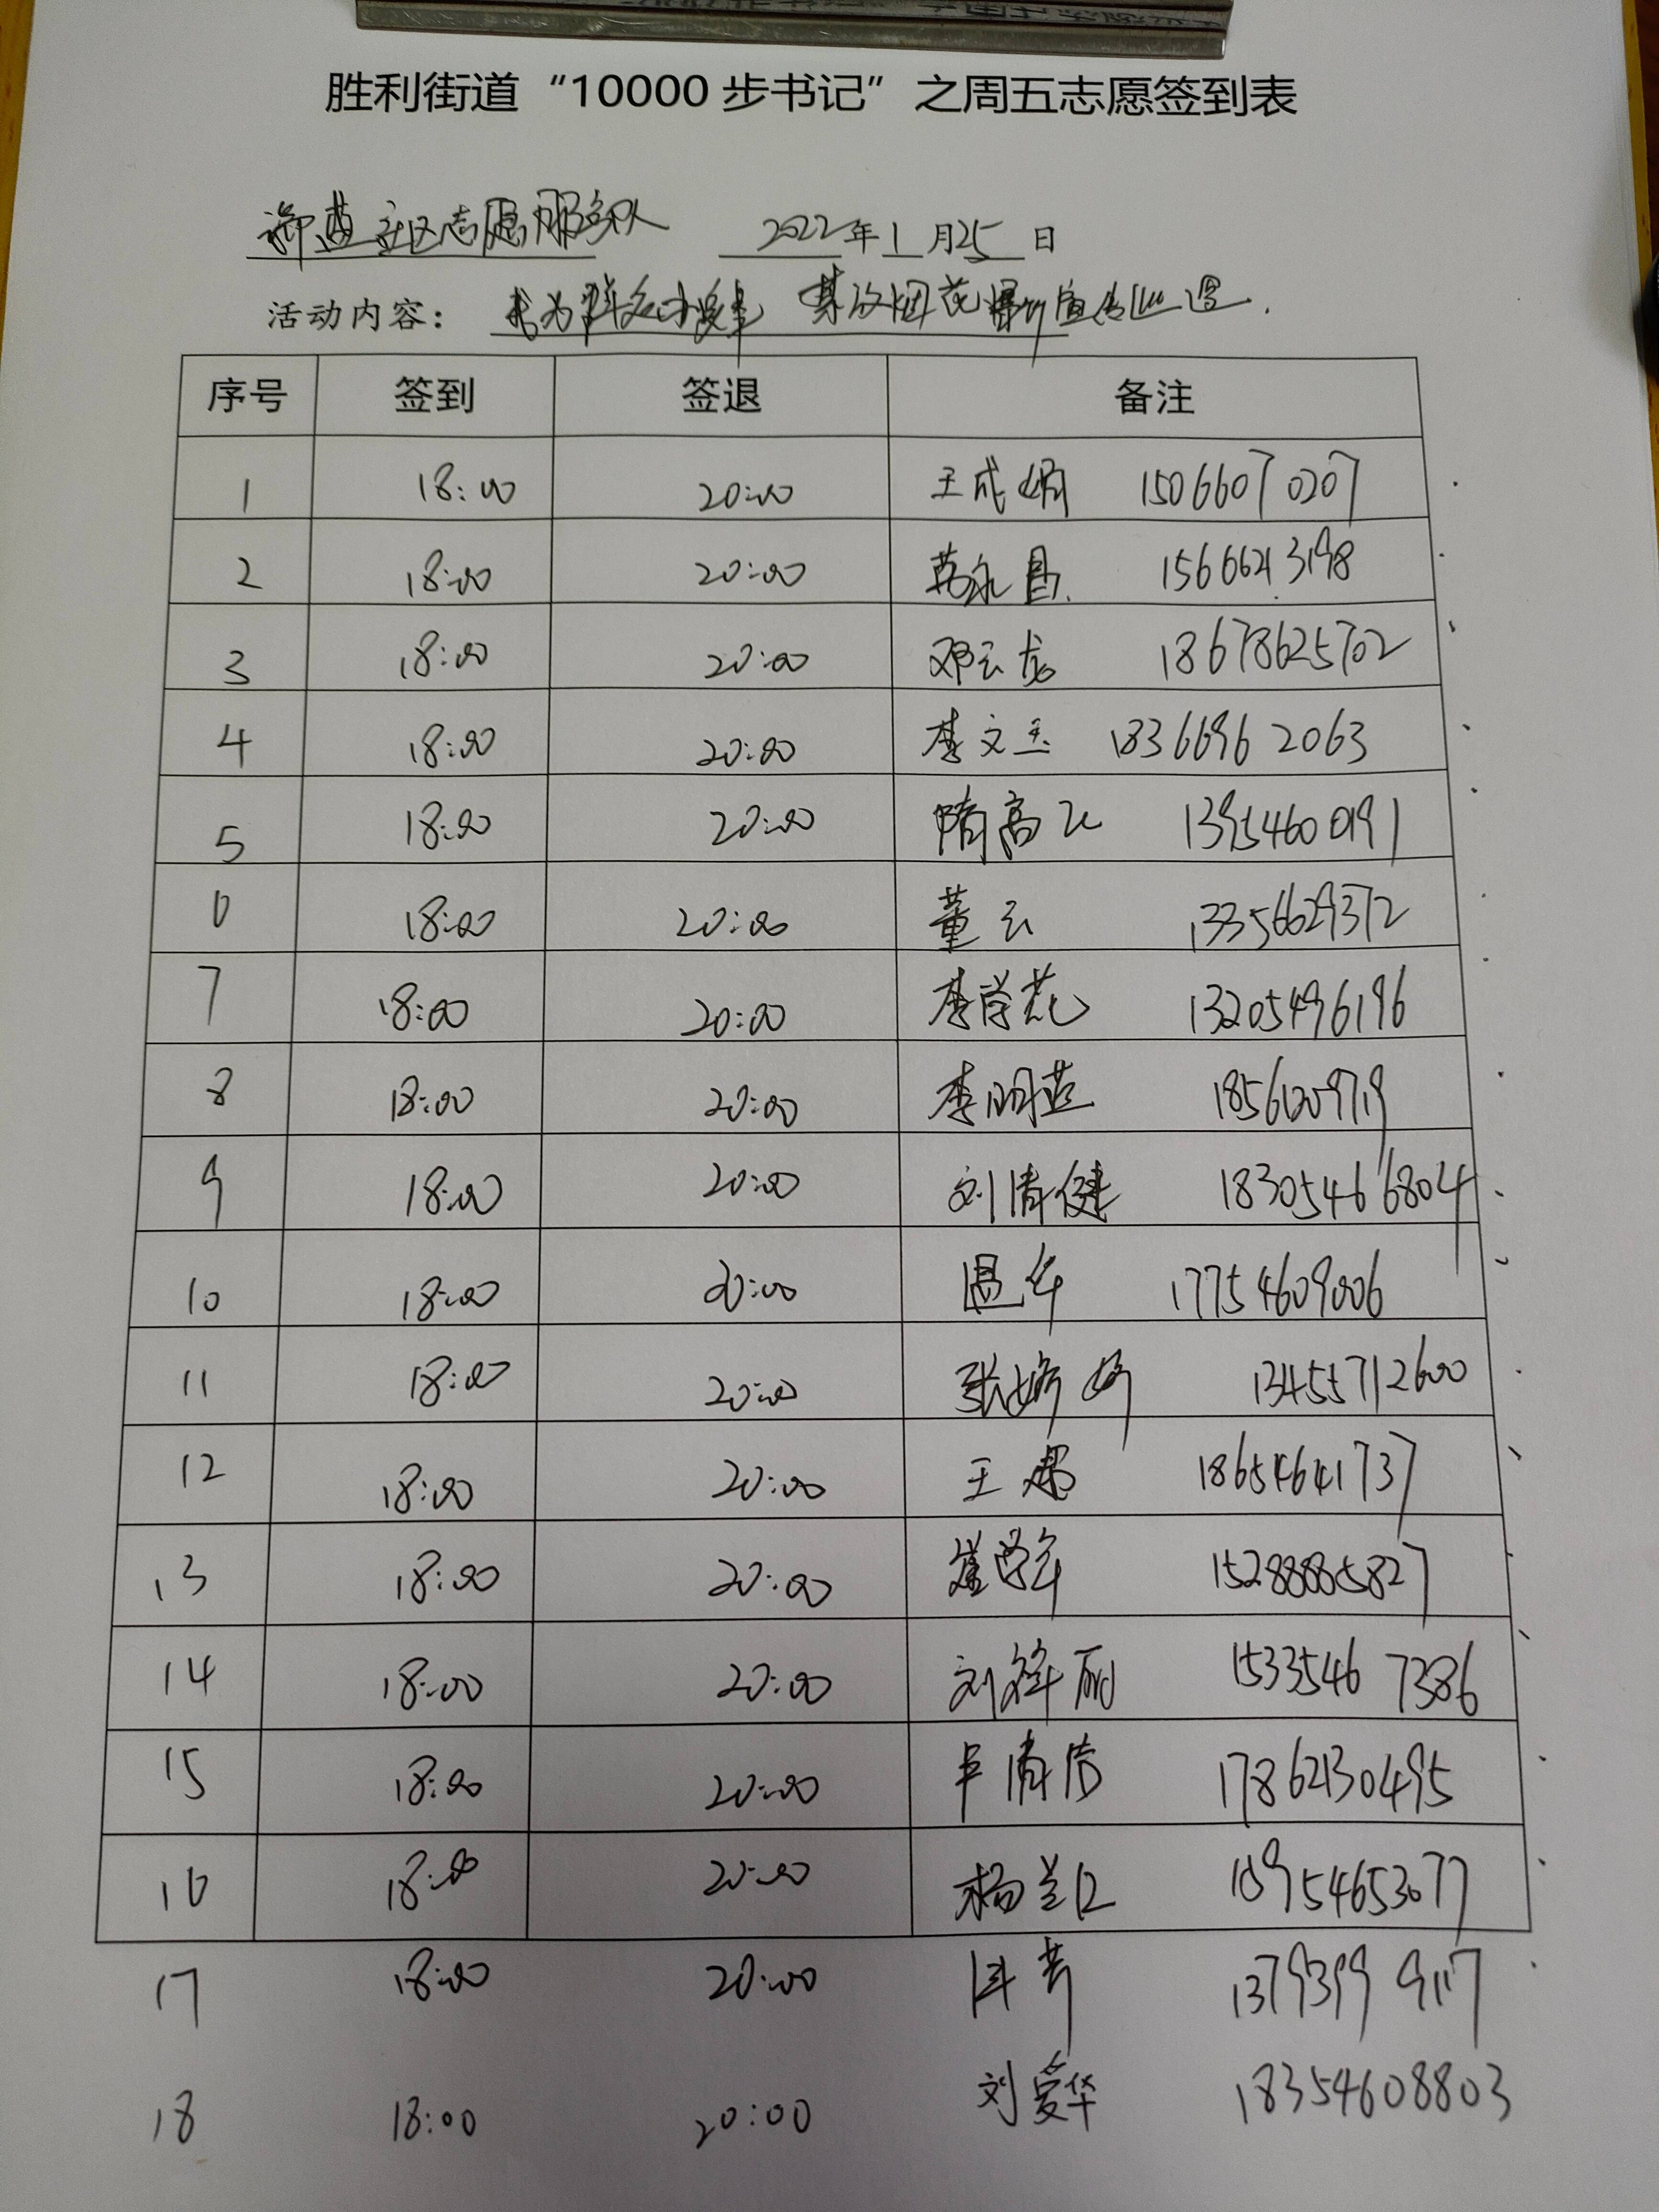 胜利街道“10000 步书记”之周五志愿签到表
社区志愿服务队 2022年1月25日
活动内容： 禁放烟花爆竹宣传
序号 签到 签退 备注
1 18:00 20:00 王成娟 15066070207
2 18:00 20:00 15666213198
3 18:00 20:00 邓云龙 18678625702
4 18:00 20:00 李文玉 18366962063
5 18:00 20:00 隋高飞 13954600191
6 18:00 20:00 董云 13356629372
7 18:00 20:00 李学花 13205496196
8 18:00 20:00 李明燕
9 18:00 20:00 刘清健 18305466804
10 18:00 20:00 温华 17754609006
11 18:00 20:00 张婷婷 13455712600
12 18:00 20:00 王 18654641737
13 18:00 20:00 崔 15288885827
14 18:00 20:00 刘祥丽 15335467386
15 18:00 20:00 17862130495
16 18:00 20:00 杨兰 18954653077
17 18:00 20:00 13793999117
18 18:00 20:00 刘爱华 18354608803